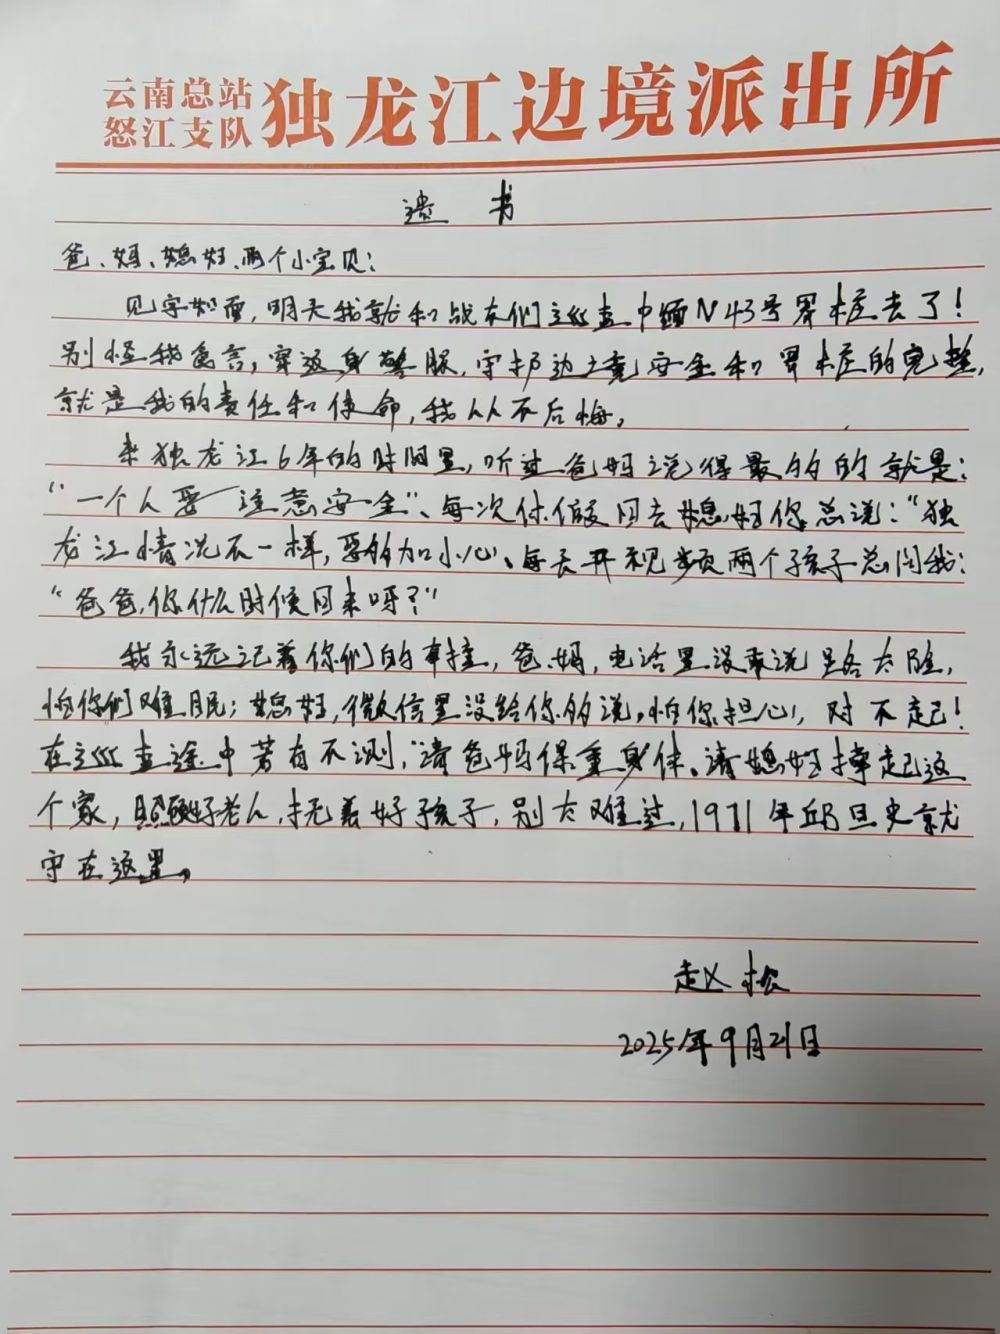 云南总站
怒江支队
独龙江边境派出所
遗 书
爸、妈、媳妇、两个小宝贝：
见字如面，明天我就和战友们巡查中缅N43号界桩去了！
别怪我食言，穿这身警服，守护边境安全和界桩的完整，
就是我的责任和使命，我从不后悔。
来独龙江6年的时间里，听过爸妈说得最多的就是：
“一个人要注意安全”、每次休假回去媳妇你总说：“独
龙江情况不一样，要多加小心。每天开视频两个孩子总问我：
“爸爸，你什么时候回来呀？”
我永远记着你们的牵挂，爸妈，电话里没敢说路太险，
怕你们难眠；媳妇，微信里没给你多说，怕你担心，对不起！
在巡查途中若有不测，请爸妈保重身体。请媳妇撑起这
个家，照顾好老人，抚养好孩子，别太难过，1971年邱旦史就
守在这里。
赵松
2025年9月21日